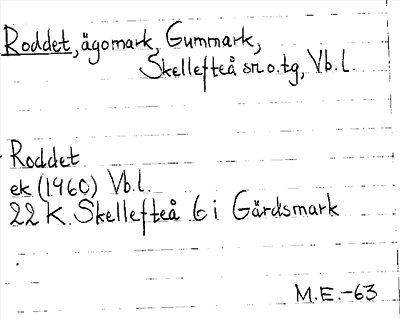 Roddet, ägomark, Gummark,
Skellefteå sn o. tg, Vb. l.
Roddet
ek (1960) Vb. l.
22 K. Skellefteå 6 i Gärdsmark
M.E.-63